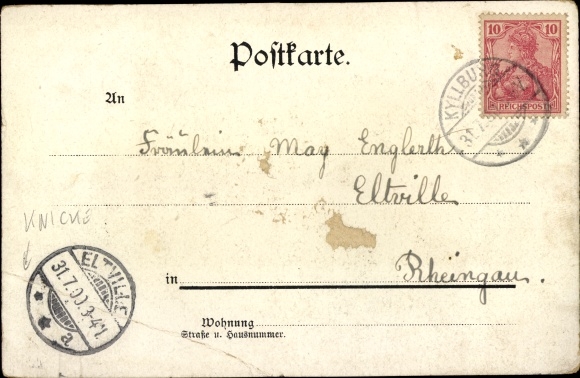 Postkarte.
10 10
REICHSPOST
KYLLBU
31.7
An
Fräulein May Englerth
Eltville
KNICKE
ELTVILLE
31.7.00.3-4N
a
in Rheingau.
Wohnung
Straße u. Hausnummer.